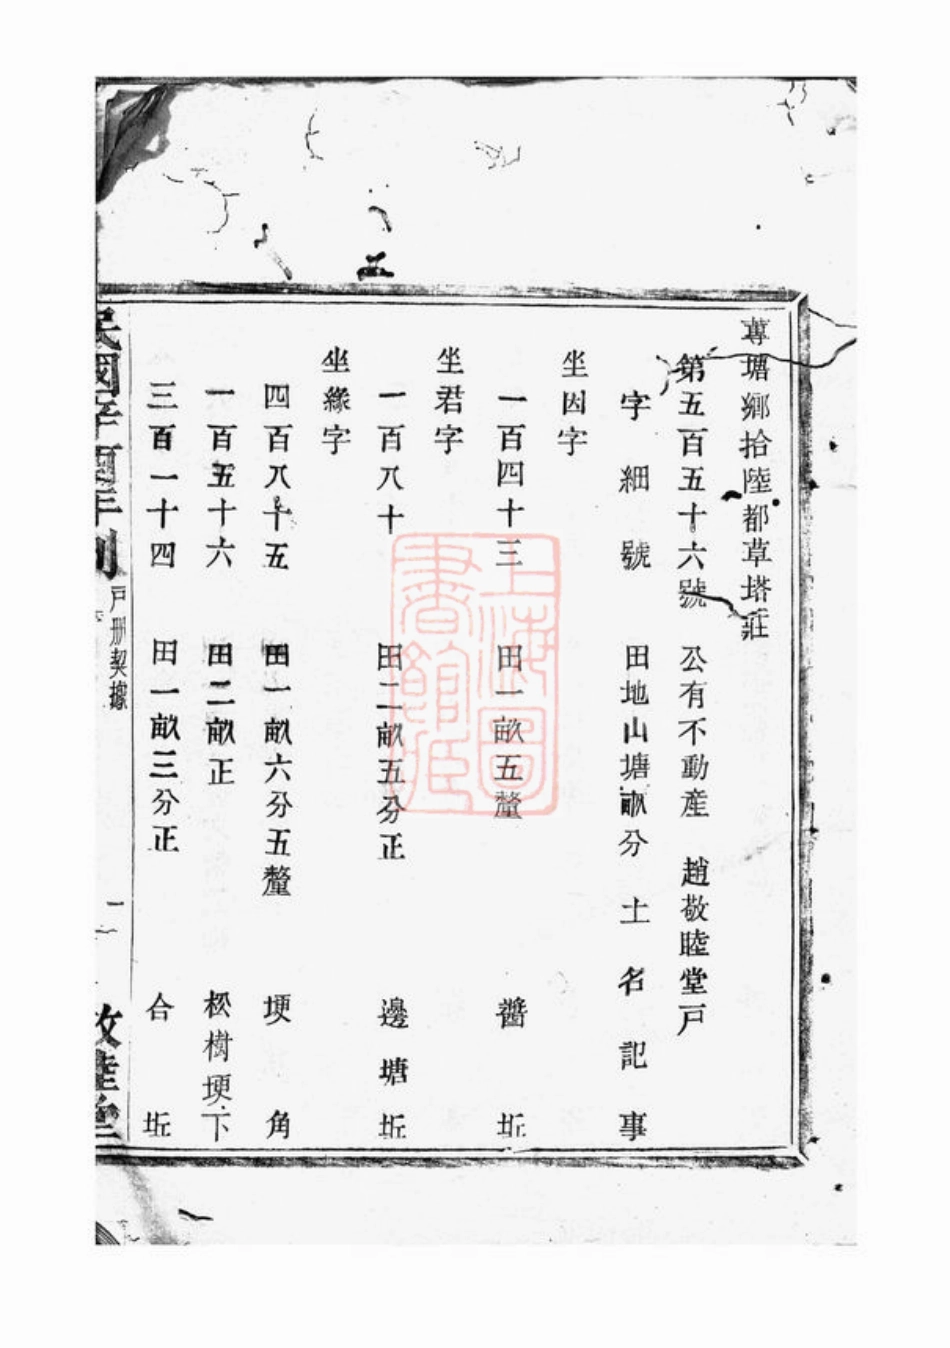 蓴塘鄉拾陸都草塔莊
第五百五十六號　公有不動產　趙敬睦堂戶
字細號　田地山塘畝分　土名　記事
坐因字
一百四十三　田一畝五釐　醬坵
坐君字
一百八十　田二畝五分正　邊塘坵
坐緣字
四百八十五　田一畝六分五釐　埂角
一百五十六　田二畝正　松樹埂下
三百一十四　田一畝三分正　合坵
民國辛酉年刊　戶册契據　一　敬睦堂
上海圖書館藏